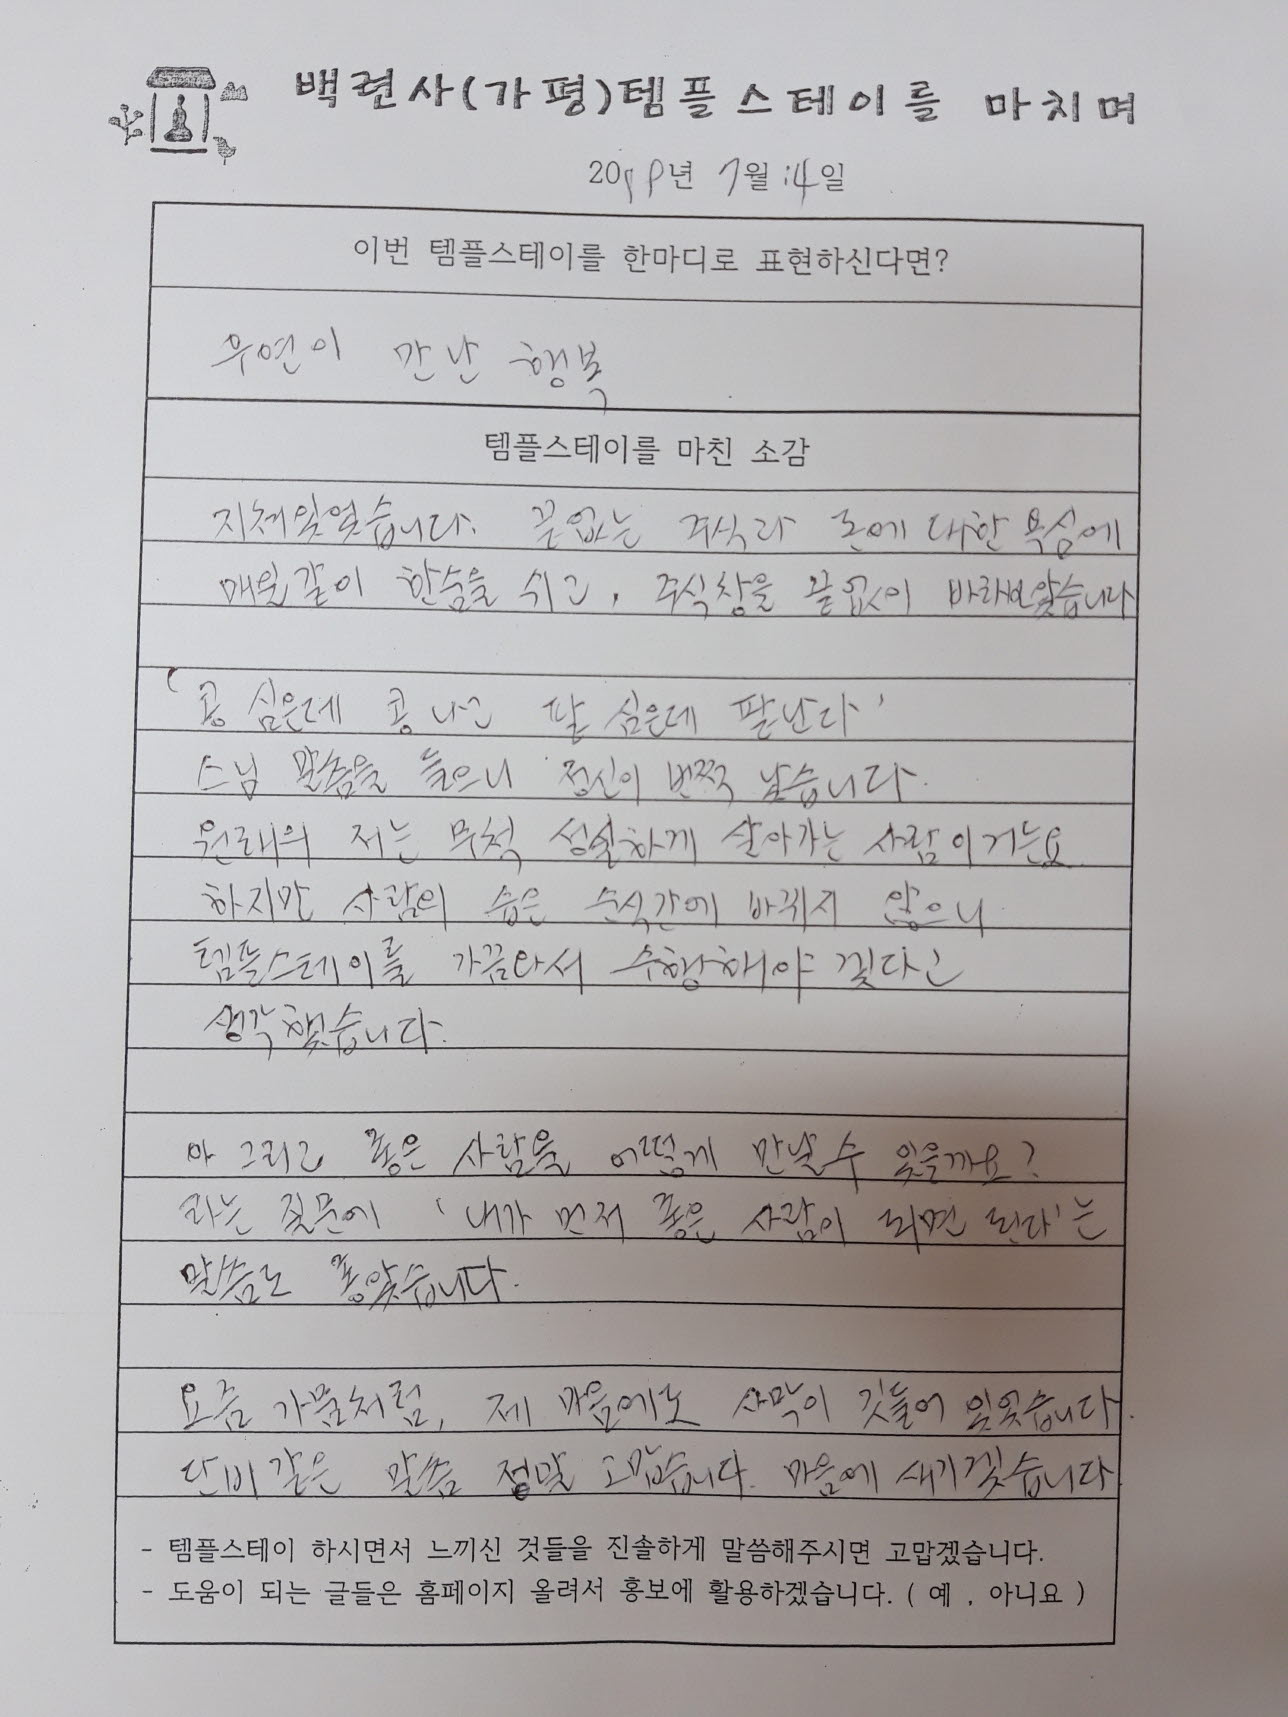 백련사(가평)템플스테이를 마치며
20 년 7월 14일
이번 템플스테이를 한마디로 표현하신다면?
우연이 만난 행복
템플스테이를 마친 소감
지쳐있었습니다. 끝없는 주식과 돈에 대한 욕심에
매일같이 한숨을 쉬고, 주식창을 끝없이 바라보았습니다
'콩 심은데 콩 나고 팥 심은데 팥난다'
스님 말씀을 들으니 정신이 번쩍 났습니다.
원래의 저는 무척 성실하게 살아가는 사람이거든요
하지만 사람의 습은 순식간에 바뀌지 않으니
템플스테이를 가끔와서 수행해야 겠다고
생각했습니다.
아 그리고 좋은 사람을 어떻게 만날수 있을까요?
라는 질문에 '내가 먼저 좋은 사람이 되면 된다'는
말씀도 좋았습니다.
요즘 가뭄처럼, 제 마음에도 사막이 깃들어 있었습니다.
단비같은 말씀 정말 고맙습니다. 마음에 새기겠습니다
- 템플스테이 하시면서 느끼신 것들을 진솔하게 말씀해주시면 고맙겠습니다.
- 도움이 되는 글들은 홈페이지 올려서 홍보에 활용하겠습니다. ( 예 , 아니요 )